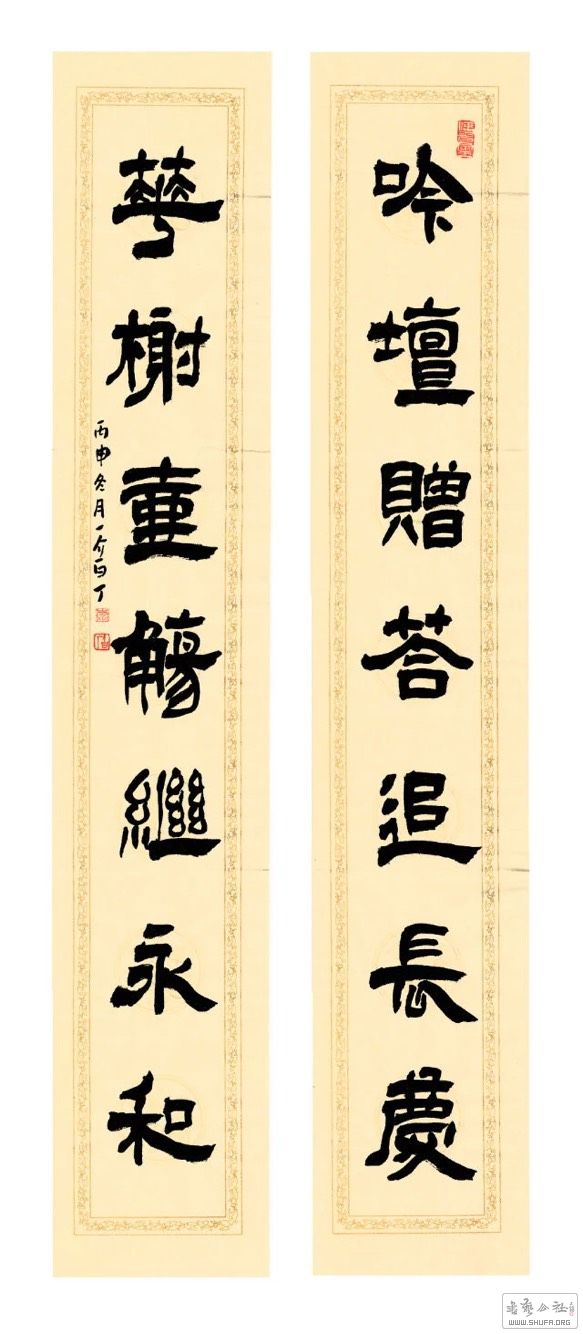 吟壇贈荅追長慶
華榭壺觴繼永和
丙申冬月一介白丁
书艺公社
WWW.SHUFA.ORG